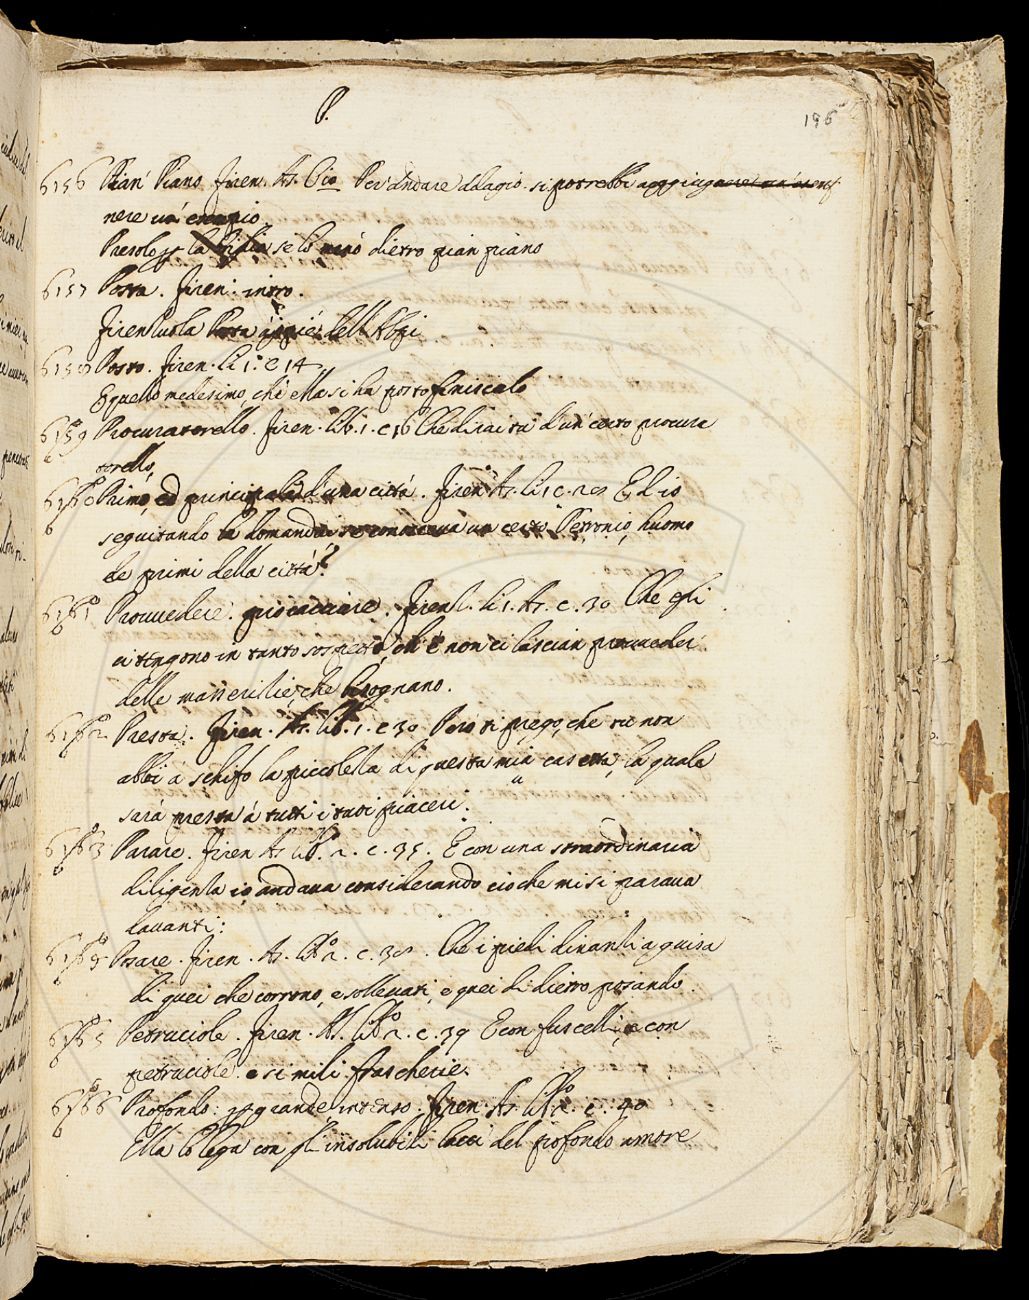 P.
196
6156 Pian' Piano Firen. As. Per andare adagio. si potrebbe aggiugnere
nere un' esempio
Presolo p la briglia se lo menò dietro pian piano
6157 Porta. Firen. intro.
Firenzuola Posta a piè dell' Alpi
6158 Posto. Firen. li 1. c 14
E quello medesimo, ch' ella si ha posto finiscelo
6159 Procuratorello. Firen. lib. 1. c 16 Che dirai tu d'un certo procura
torello,
Primo, ed principale d'una città. Firen As. li 1 c. 28 Ed io
seguitando la domanda se conosceva un certo Petronio, huomo
de primi della città?
Provvedere. procacciare. Firenz. li 1. As. c. 30 Che gli
ci tengono in tanto sospetto, ch' e' non ci lascian proveder
delle masserizie, che bisognano.
Presta. Firen. As. lib. 1. c 30 Però ti priego, che tu non
abbi à schifo la piccoletta di questa mia casetta, la quale
sarà presta à tutti i tuoi piaceri.
Parare. Firen As lib. 2. c. 35. E con una straordinaria
diligenza io andava considerando ciò che mi si parava
davanti:
Posare. Firen. As. lib 2. c. 38. Che i piedi dinanzi a guisa
di quei che corrono, e sollevati, e quei di dietro posando.
Petruciole. Firen. As. lib 2. c. 39 E con fuscelli, e con
petruciole e simili frascherie.
Profondo: p grande, intenso. Firen. As. lib 2. c. 40
Ella lo lega con gl' insolubili lacci del profondo amore